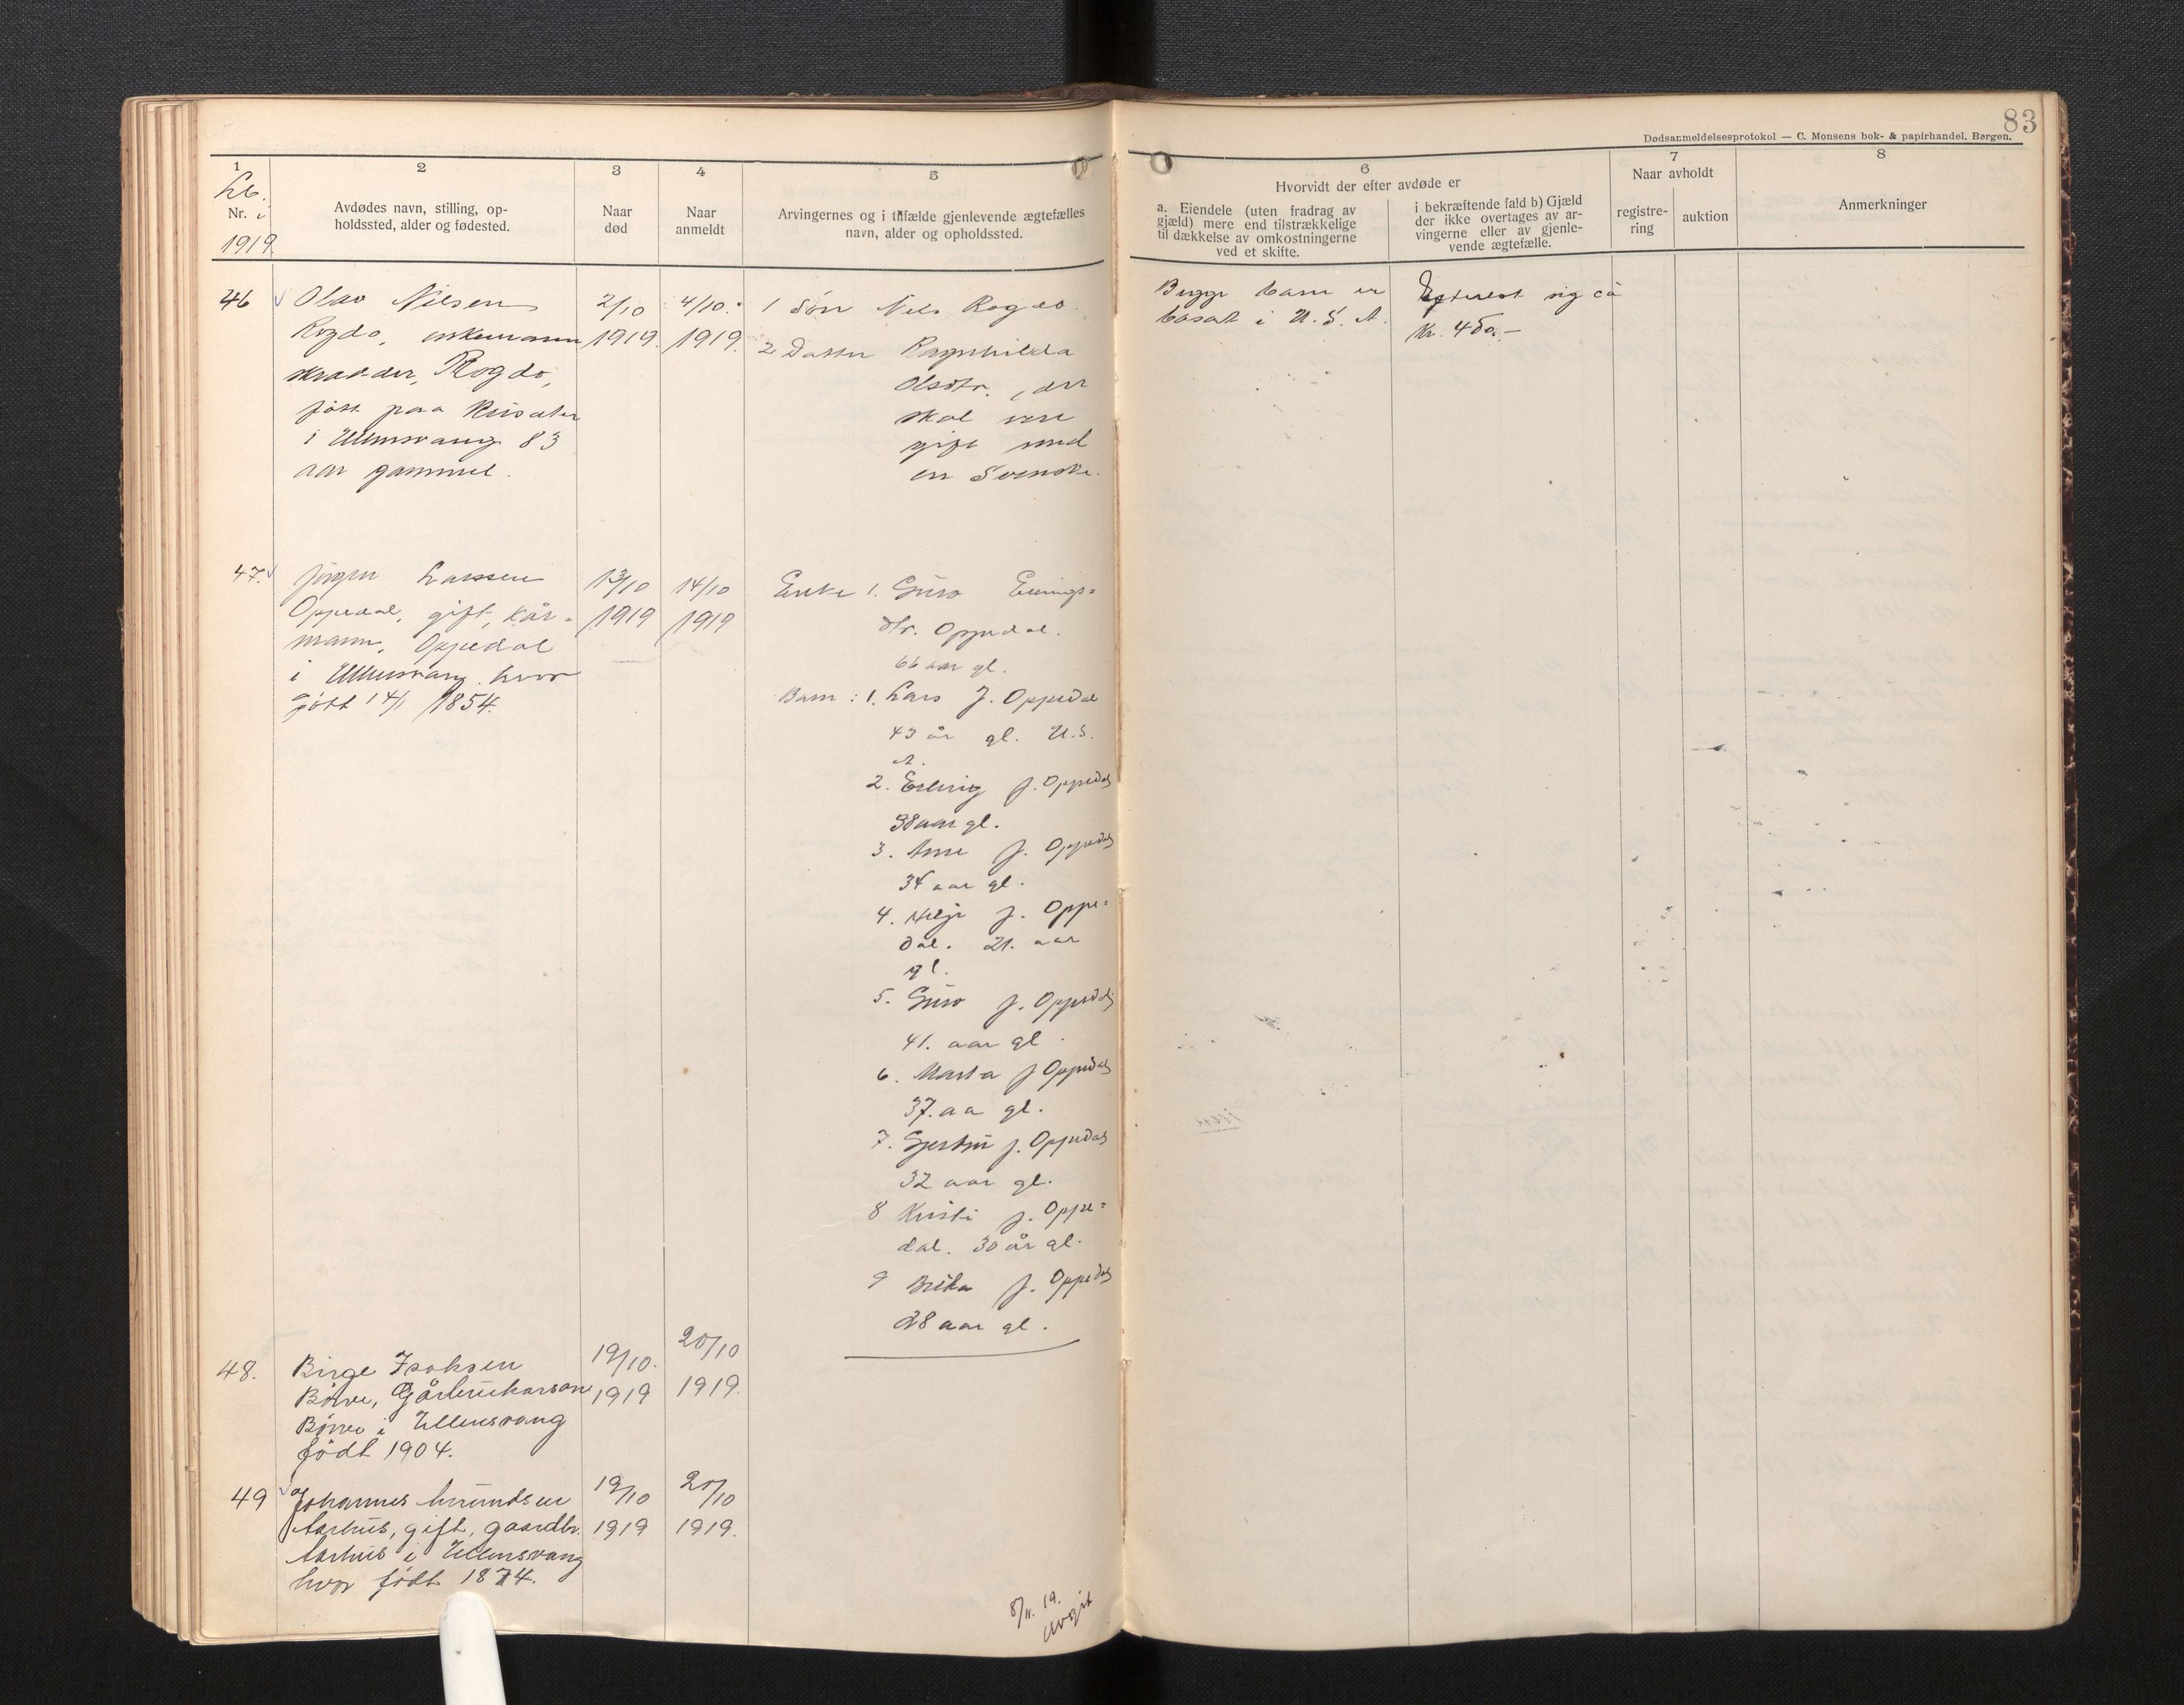 83
Dødsanmeldelsesprotokol — C. Monsens bok- & papirhandel. Bergen.
1
Lb.
Nr. i
1919.
2
Avdødes navn, stilling, op-
holdssted, alder og fødested.
3
Naar
død
4
Naar
anmeldt
5
Arvingernes og i tilfælde gjenlevende ægtefælles
navn, alder og opholdssted.
6
Hvorvidt der efter avdøde er
a. Eiendele (uten fradrag av
gjæld) mere end tilstrækkelige
til dækkelse av omkostningerne
ved et skifte.
i bekræftende fald b) Gjæld
der ikke overtages av ar-
vingerne eller av gjenle-
vende ægtefælle.
7
Naar avholdt
registre-
ring
auktion
8
Anmerkninger
46
Olav Nilsen
Rogdo, enkemann
skrædder, Rogdo,
født paa
i Ullensvang 83
aar gammel.
2/10
1919.
4/10.
1919.
1 Søn Nils Rogdo.
2 Datter Ragnhilda
Olsdtr., der
skal være
gift med
en Svenske.
Begge barn er
bosat i U.S.A.
Efterlot sig ca
Kr. 450.-
47.
Jørgen Larssen
Oppedal, gift, kår-
mann, Oppedal
i Ullensvang hvor
født 14/1 1854.
13/10
1919
14/10
1919
Enke 1. Guro
dtr. Oppedal.
66 aar gl.
Barn: 1. Lars J. Oppedal
43 år gl. U.S.
A.
2. J. Oppedal
38 aar gl.
3. Arne J. Oppedal
34 aar gl.
4. Helje J. Oppe=
dal. 21. aar
gl.
5. Guro J. Oppedal
41. aar gl
6. Marta J Oppedal
37. aa gl.
7. J. Oppedal
32 aar gl.
8 Kristi J. Oppe=
dal. 30 år gl.
9 Brita J. Oppedal
28 aar gl.
48.
Birge Isaksen
Børve, Gårbrukarson
Børve i Ullensvang
født 1904.
19/10.
1919
20/10
1919.
49
Johannes Amundsen
Aarhus, gift, gaardbr.
Aarhus i Ullensvang
hvor født 1874.
19/10
1919
20/10
1919.
8/11. 19.